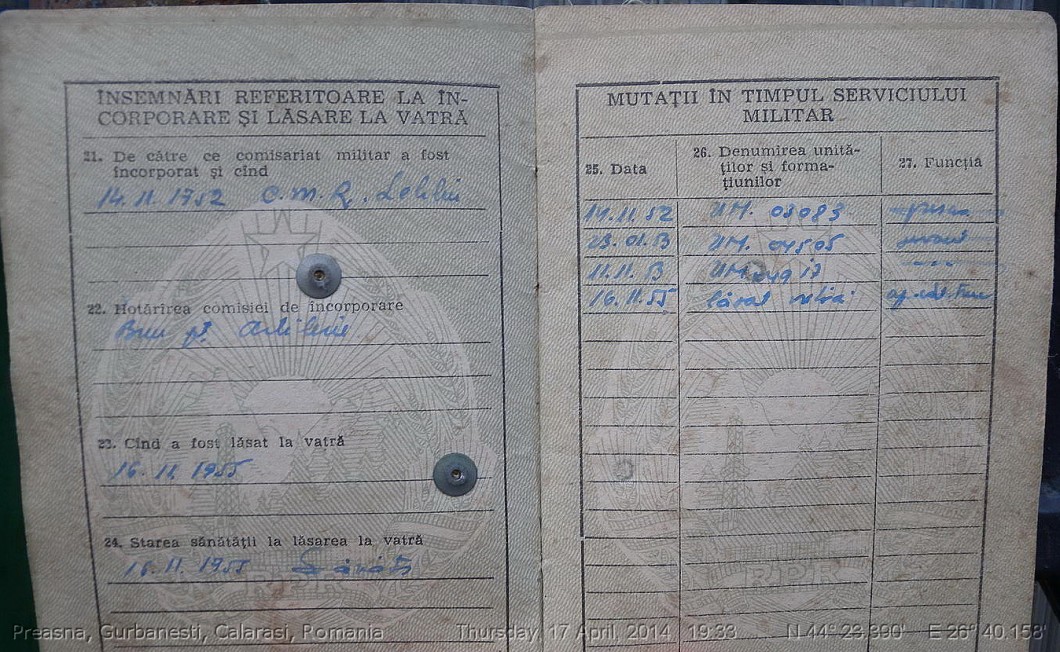 ÎNSEMNĂRI REFERITOARE LA ÎN-
CORPORARE ȘI LĂSARE LA VATRĂ
21. De către ce comisariat militar a fost
încorporat și cînd
14.11.1952 C.M.R. Lehliu
22. Hotărîrea comisiei de încorporare
Bun pt. Artilerie
23. Cînd a fost lăsat la vatră
16.11.1955
24. Starea sănătății la lăsarea la vatră
16.11.1955 Sănătos
RPR
MUTAȚII ÎN TIMPUL SERVICIULUI
MILITAR
25. Data
26. Denumirea unită-
ților și forma-
țiunilor
27. Funcția
14.11.52 UM. 03083
23.01.53 UM. 04505
11.11.53 UM
16.11.55 lăsat
RPR
Preasna, Gurbanesti, Calarasi, Romania Thursday, 17 April, 2014 19:33 N 44° 23.390' E 26° 40.158'